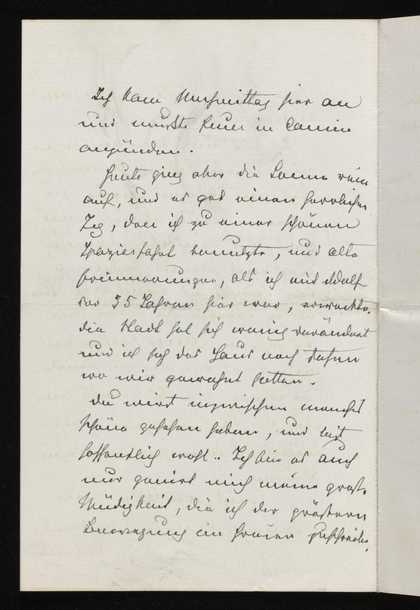 Ich kam Nachmittag hier an
und musste Feuer im Camin
anzünden.
Heute ging aber die Sonne rein
auf, und es gab einen herrlichen
Tag, den ich zu einer schönen
Spazierfahrt benutzte, und alte
Erinnerungen, als ich mit Adolf
vor 35 Jahren hier war, erwachten.
die Stadt hat sich wenig verändert
und ich sah das Haus noch stehen
wo wir gewohnt hatten.
Du wirst inzwischen manches
schöne gesehen haben, und bist
hoffentlich wohl. Ich bin es auch
nur genirt mich meine große
Müdigkeit, die ich der größeren
Bewegung im Freien zuschreibe.